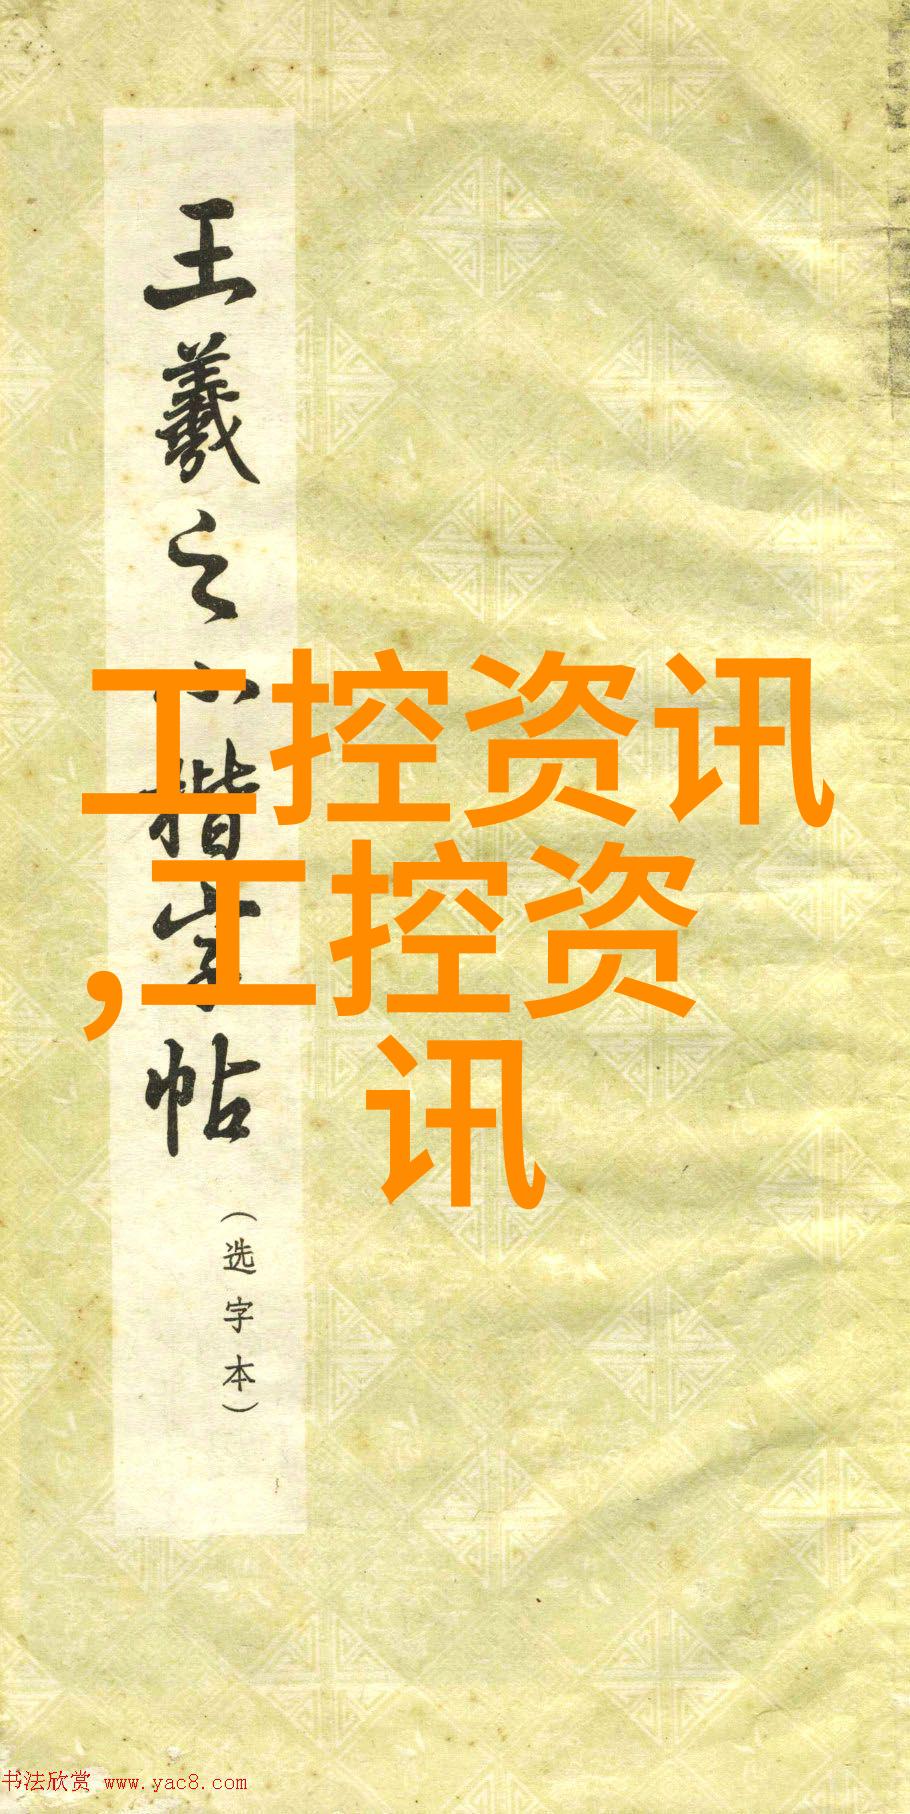 王羲之小楷字帖
(选字本)
工控资讯
,工控资
讯
书法欣赏 www.yac8.com